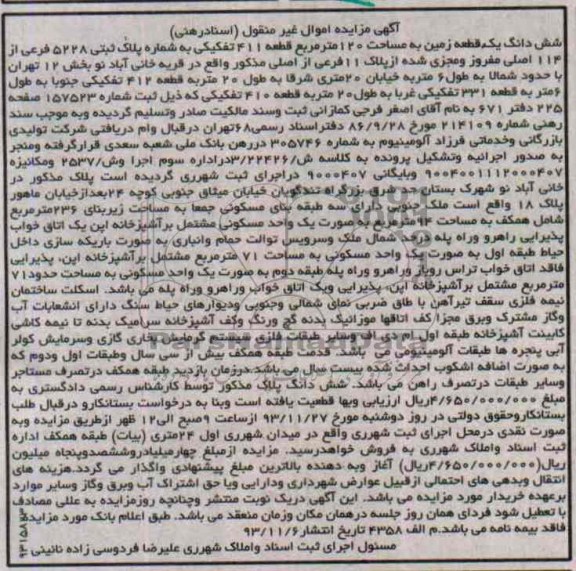 آگهی مزایده اموال غیر منقول (اسنادرهنی)
شش دانگ یک‌قطعه زمین به مساحت ۱۲۰مترمربع قطعه ۴۱۱ تفکیکی به شماره پلاک ثبتی ۵۲۲۸ فرعی از
۱۱۴ اصلی مفروز ومجزی شده ازپلاک ۱۱فرعی از اصلی مذکور واقع در قریه خانی آباد نو بخش ۱۲ تهران
با حدود شمالا به طول۶ متربه خیابان ۲۰متری شرقا به طول ۲۰ متربه قطعه ۴۱۲ تفکیکی جنوبا به طول
۶متر به قطعه ۳۳۱ تفکیکی غربا به طول۲۰ متربه قطعه ۴۱۰ تفکیکی که ذیل ثبت شماره ۱۵۷۵۲۳ صفحه
۲۲۵ دفتر ۶۷۱ به نام آقای اصغر فرجی کمازانی ثبت وسند مالکیت صادر وتسلیم گردیده وبه موجب سند
رهنی شماره ۲۱۴۱۰۹ مورخ ۸۶/۹/۲۸ دفتراسناد رسمی۶۸تهران درقبال وام دریافتی شرکت تولیدی
بازرگانی وخدماتی فرزاد آلومینیوم به شماره ۳۰۵۷۴۶ دررهن بانک ملی شعبه سعدی قرارگرفته ومنجر
به صدور اجرائیه وتشکیل پرونده به کلاسه ش/۳/۲۲۴۲۶دراداره سوم اجرا وش/۲۵۳۷ ومکانیزه
۹۰۰۴۰۰۱۱۱۲۰۰۰۴۰۷ وبایگانی ۹۰۰۰۴۰۷ دراجرای ثبت شهرری گردیده است پلاک مذکور در
خانی آباد نو شهرک بستان حد شرق بزرگراه تندگویان خیابان میثاق جنوبی کوچه ۲۴بعدازخیابان ماهور
پلاک ۱۸ واقع است ملک جنوبی دارای سه طبقه بنای مسکونی جمعا به مساحت زیربنای ۲۳۶مترمربع
شامل همکف به مساحت ۹۴مترمربع به صورت یک واحد مسکونی مشتمل برآشپزخانه اپن یک اتاق خواب
پذیرایی راهرو وراه پله درحد شمال ملک وسرویس توالت حمام وانباری به صورت باریکه سازی داخل
حیاط طبقه اول به صورت یک واحد مسکونی به مساحت ۷۱ مترمربع مشتمل برآشپزخانه اپن، پذیرایی
فاقد اتاق خواب تراس روباز وراهرو وراه پله طبقه دوم به صورت یک واحد مسکونی به مساحت حدود۷۱
مترمربع مشتمل برآشپزخانه اپن پذیرایی ویک اتاق خواب وراهرو وراه پله می باشد. اسکلت ساختمان
نیمه فلزی سقف تیرآهن با طاق ضربی نمای شمالی وجنوبی ودیوارهای حیاط سنگ دارای انشعابات آب
وگاز مشترک وبرق مجزا کف اتاقها موزائیک بدنه گچ ورنگ وکف آشپزخانه سرامیک بدنه تا نیمه کاشی
کابینت آشپزخانه طبقه اول ام دی اف وسایر طبقات فلزی سیستم گرمایش بخاری گازی وسرمایش کولر
آبی پنجره ها طبقات آلومینیومی می باشد. قدمت طبقه همکف بیش از سی سال وطبقات اول ودوم که
به صورت اضافه اشکوب احداث شده بیست سال می باشد.درزمان بازدید طبقه همکف درتصرف مستاجر
وسایر طبقات درتصرف راهن می باشد. شش دانگ پلاک مذکور توسط کارشناس رسمی دادگستری به
مبلغ ۴/۶۵۰/۰۰۰/۰۰۰ریال ارزیابی وبها قطعیت یافته است وبنا به درخواست بستانکارو درقبال طلب
بستانکاروحقوق دولتی در روز دوشنبه مورخ ۹۳/۱۱/۲۷ ازساعت ۹صبح الی۱۲ ظهر ازطریق مزایده وبه
صورت نقدی درمحل اجرای ثبت شهرری واقع در میدان شهرری اول ۲۴متری (بیات) طبقه همکف اداره
ثبت اسناد واملاک شهرری به فروش خواهدرسید. مزایده ازمبلغ چهارمیلیاردوششصدوپنجاه میلیون
ریال(۴/۶۵۰/۰۰۰/۰۰۰ریال) آغاز وبه دهنده بالاترین مبلغ پیشنهادی واگذار می گردد.هزینه های
انتقال وبدهی های احتمالی ازقبیل عوارض شهرداری ودارایی ویا حق اشتراک آب وبرق وگاز وسایر موارد
برعهده خریدار مورد مزایده می باشد. این آگهی دریک نوبت منتشر وچنانچه روزمزایده به عللی مصادف
با تعطیل شود فردای همان روز جلسه درهمان مکان وزمان منعقد می باشد. طبق اعلام بانک مورد مزایده
فاقد بیمه نامه می باشد.م الف ۴۳۵۸ تاریخ انتشار۹۳/۱۱/۶
مسئول اجرای ثبت اسناد واملاک شهرری علیرضا فردوسی زاده نائینی